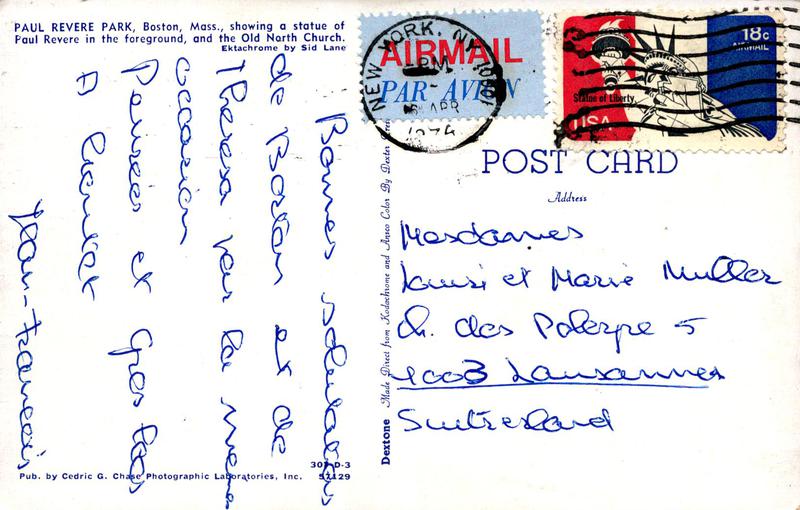 PAUL REVERE PARK, Boston, Mass., showing a statue of
Paul Revere in the foreground, and the Old North Church.
Ektachrome by Sid Lane
Bonnes salutations
de Boston et de
Theresa par la même
occasion
Pensées et
A bientôt
Jean-François
307-D-3
Pub. by Cedric G. Chase Photographic Laboratories, Inc. 57129
Dextone Made Direct from Kodachrome and Ansco Color By Dexter
AIRMAIL
PAR AVION
NEW YORK, NY 10001
PM
APR
1974
18c
AIRMAIL
Statue of Liberty
USA
POST CARD
Address
Mesdames
Louisi et Marie Muller
Ch. des 5
1003 Lausanne
Switzerland